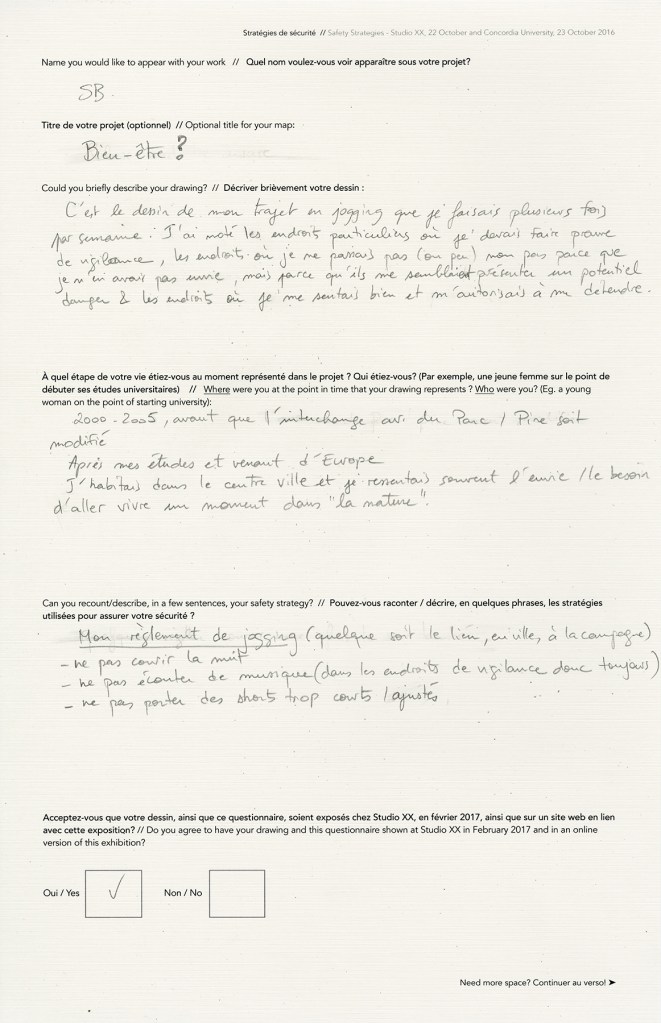 Stratégies de sécurité // Safety Strategies - Studio XX, 22 October and Concordia University, 23 October 2016
Name you would like to appear with your work // Quel nom voulez-vous voir apparaître sous votre projet?
SB.
Titre de votre projet (optionnel) // Optional title for your map:
Bien-être ?
Could you briefly describe your drawing? // Décriver brièvement votre dessin :
C'est le dessin de mon trajet en jogging que je faisais plusieurs fois
par semaine. J'ai noté les endroits particuliers où je devais faire preuve
de vigilance, les endroits où je ne passais pas (ou peu) non pas parce que
je n'en avais pas envie, mais parce qu'ils me semblaient présenter un potentiel
danger & les endroits où je me sentais bien et m'autorisais à me détendre.
À quel étape de votre vie étiez-vous au moment représenté dans le projet ? Qui étiez-vous? (Par exemple, une jeune femme sur le point de
débuter ses études universitaires) // Where were you at the point in time that your drawing represents ? Who were you? (Eg. a young
woman on the point of starting university):
2000-2005, avant que l'interchange av. du Parc / Pine soit
modifié
Après mes études et venant d'Europe
J'habitais dans le centre ville et je ressentais souvent l'envie / le besoin
d'aller vivre un moment dans "la nature".
Can you recount/describe, in a few sentences, your safety strategy? // Pouvez-vous raconter / décrire, en quelques phrases, les stratégies
utilisées pour assurer votre sécurité ?
Mon règlement de jogging (quelque soit le lieu, en ville, à la campagne)
- ne pas courir la nuit
- ne pas écouter de musique (dans les endroits de vigilance donc toujours)
- ne pas porter des shorts trop courts / ajustés
Acceptez-vous que votre dessin, ainsi que ce questionnaire, soient exposés chez Studio XX, en février 2017, ainsi que sur un site web en lien
avec cette exposition? // Do you agree to have your drawing and this questionnaire shown at Studio XX in February 2017 and in an online
version of this exhibition?
Oui / Yes ✓ Non / No
Need more space? Continuer au verso! ➤